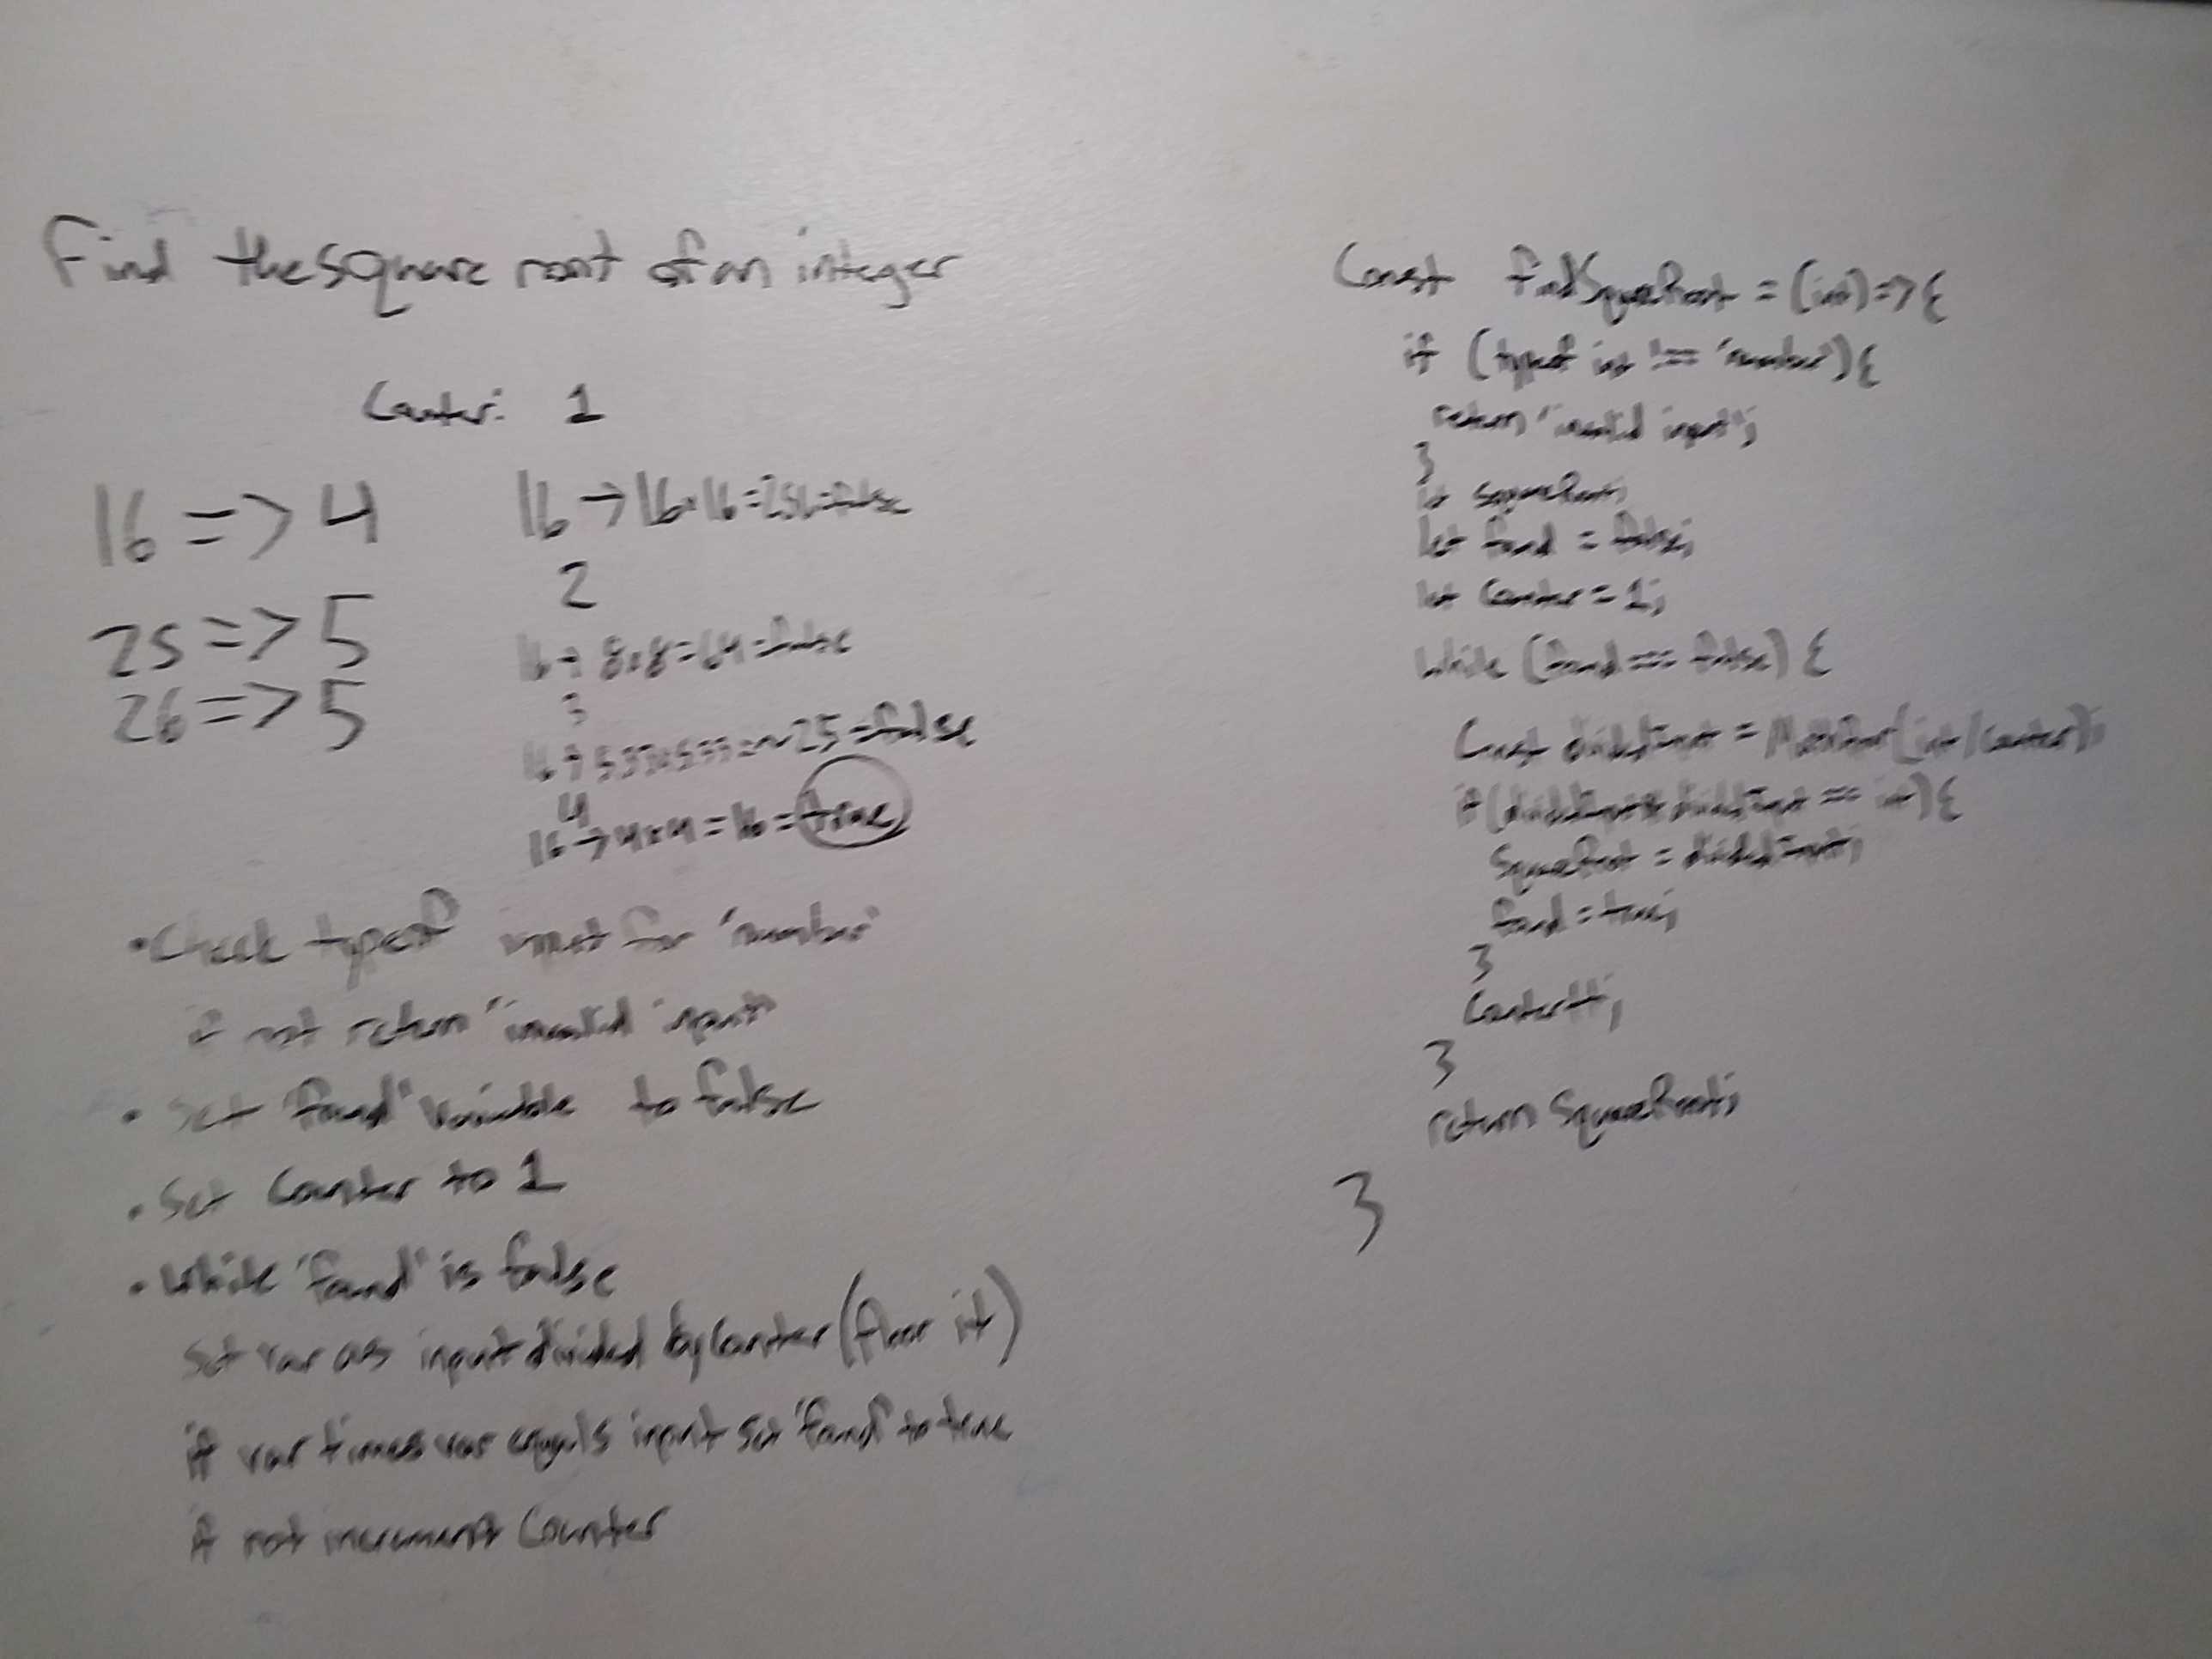 Find the square root of an integer
Counter: 1
16 => 4
25 => 5
26 => 5
16 -> 16·16=256=false
2
16 -> 8x8=64=false
3
16 -> 5.33x5.33=~25=false
4
16 -> 4x4=16=true
• Check typeof input for 'number'
if not return "invalid input"
• Set 'found' variable to false
• Set Counter to 1
• While 'found' is false
set var as input divided by Counter (floor it)
if var times var equals input set 'found' to true
if not increment Counter
Const findSquareRoot = (int) => {
if (typeof int !== 'number') {
return "invalid input";
}
let squareRoot;
let found = false;
let Counter = 1;
While (found === false) {
Const dividedInt = Math.floor(int/Counter);
if (dividedInt * dividedInt == int) {
SquareRoot = dividedInt;
found = true;
}
Counter++;
}
return SquareRoot;
}